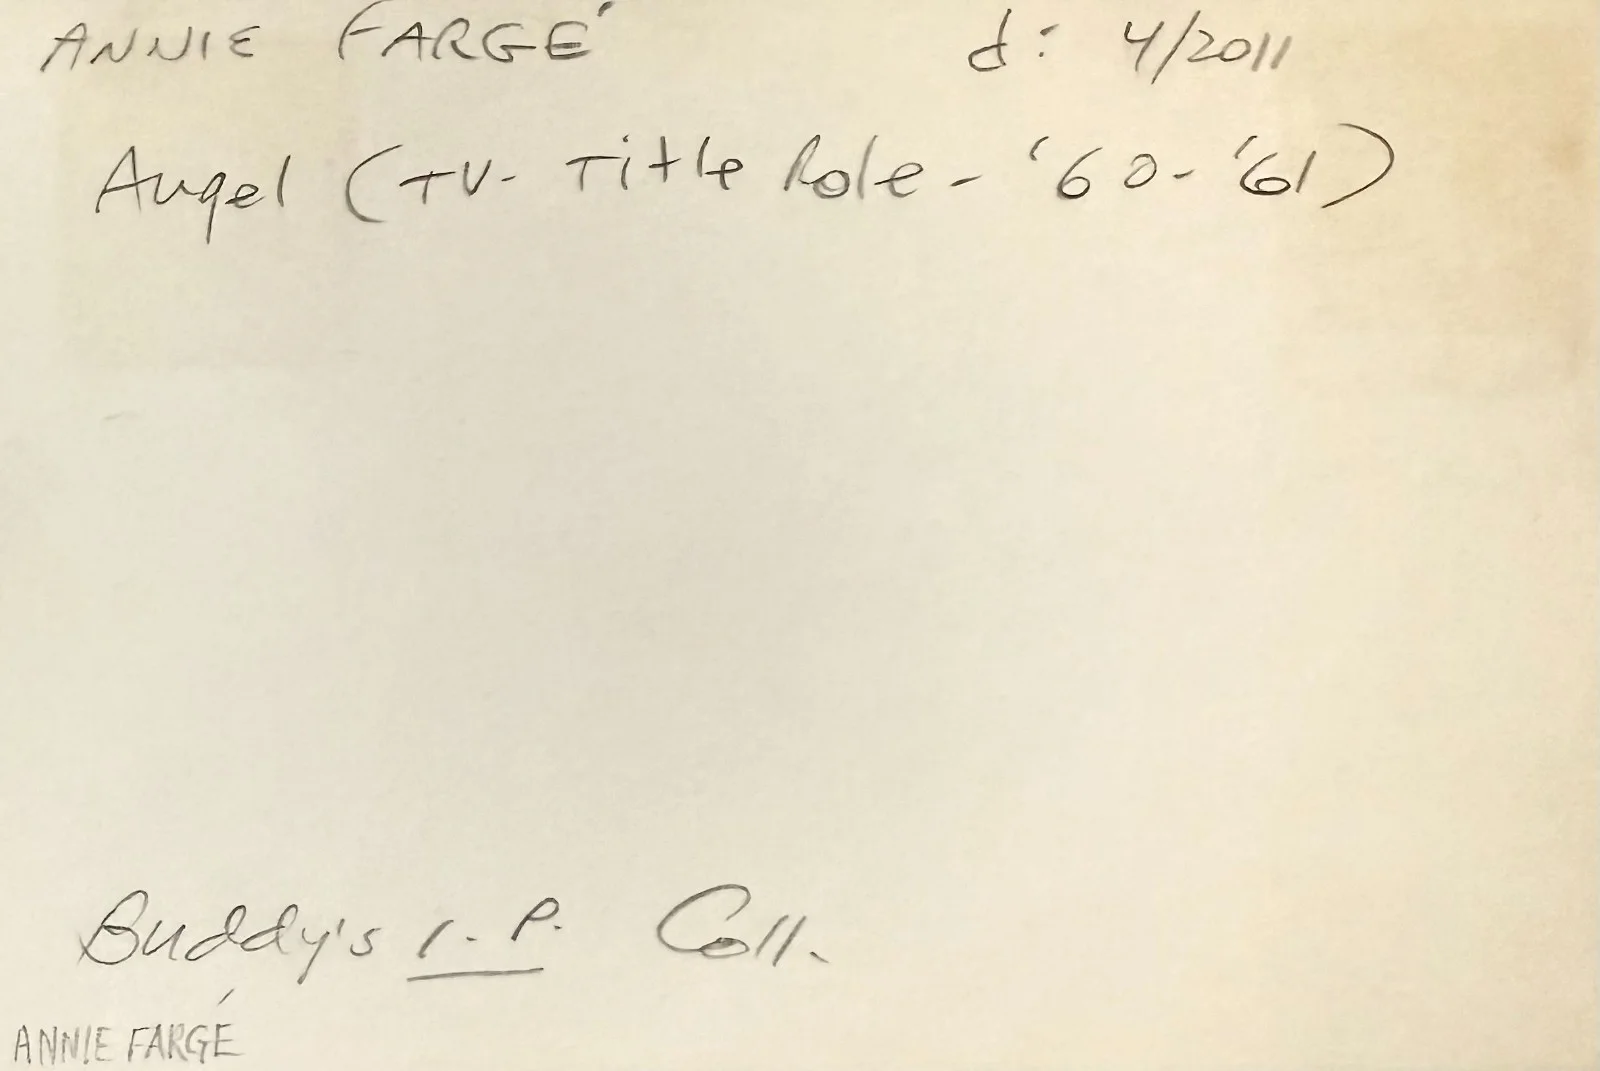 ANNIE FARGÉ d: 4/2011
Angel (TV- Title Role - '60-'61)
Buddy's I.P. Coll.
ANNIE FARGÉ